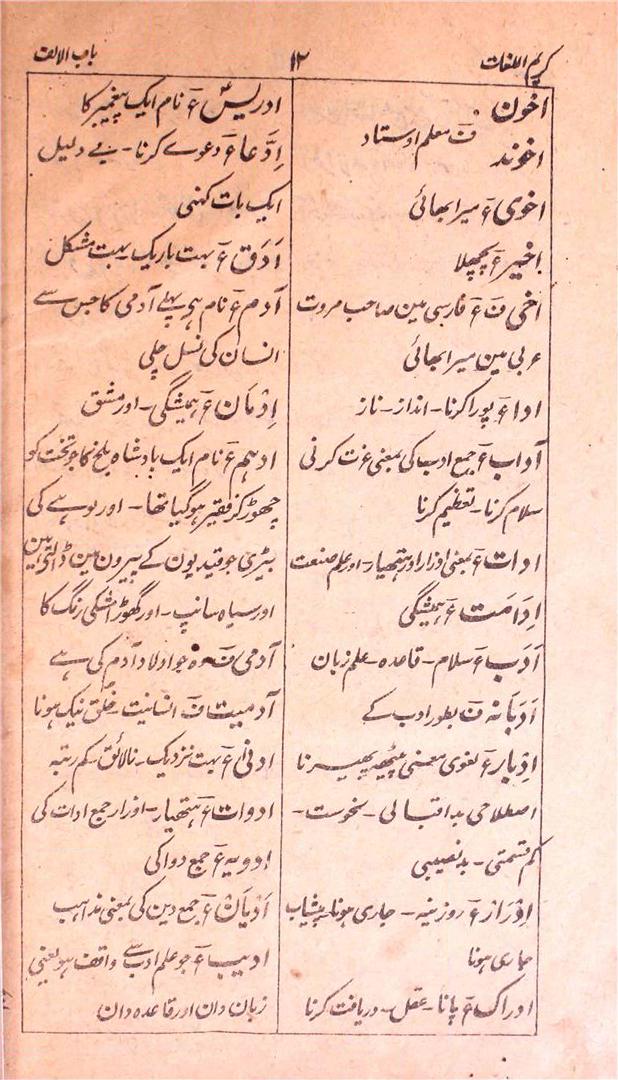 کریم اللغات
۱۲
باب الالف
اخون
اخوند
فؔ معلم اوستاد
اخوی عؔ میرا بھائی
اخیر عؔ پچھلا
اخی فؔ عؔ فارسی مین صاحب مروت
عربی مین میرا بھائی
ادا عؔ پورا کرنا۔ انداز۔ ناز
آداب عؔ جمع ادب کی بمعنی عزت کرنی
سلام کرنا۔ تعظیم کرنا
ادات عؔ بمعنی اوزار اور ہتھیار۔ اور علم صنعت
اِدَامَت عؔ ہمیشگی
اَدَب عؔ سلام۔ قاعدہ۔ علم زبان
اَدَبَانہ فؔ بطور ادب کے
اِدْبار عؔ لغوی معنی پیٹھ پھیرنا
اصطلاحی بد اقبالی۔ نحوست۔
کم قسمتی۔ بدنصیبی
اِدْرَاز عؔ روزینہ۔ جاری ہونا۔ پیشاب
جاری ہونا
ادراک عؔ پانا۔ عقل۔ دریافت کرنا
ادریسؑ عؔ نام ایک پیغمبر کا
اِدَّعا عؔ دعوے کرنا۔ بے دلیل
ایک بات کہنی
اَدَق عؔ بہت باریک۔ بہت مشکل
آدم عؔ نام ہی پہلے آدمی کا جس سے
انسان کی نسل چلی
اِدْمَان عؔ ہمیشگی۔ اور مشق
ادہم عؔ نام ایک بادشاہ بلخ کا جو تخت کو
چھوڑ کر فقیر ہو گیا تھا۔ اور لوہے کی
بیڑی جو قیدیون کے پیرون مین ڈالتے ہین
اور سیاہ سانپ۔ اور گھوڑا مشکی رنگ کا
آدمی فؔ وہ جو اولاد آدم کی ہے
آدمیت فؔ انسانیت۔ خُلق نیک ہونا
ادنیٰ عؔ بہت نزدیک۔ نالائق۔ کم رتبہ
ادوات عؔ ہتھیار۔ اوزار جمع ادات کی
ادویہ عؔ جمع دوا کی
اَدْیان عؔ جمع دین کی بمعنی مذاہب
ادیب عؔ جو علم ادب سے واقف ہو یعنی
زبان دان اور قاعدہ دان